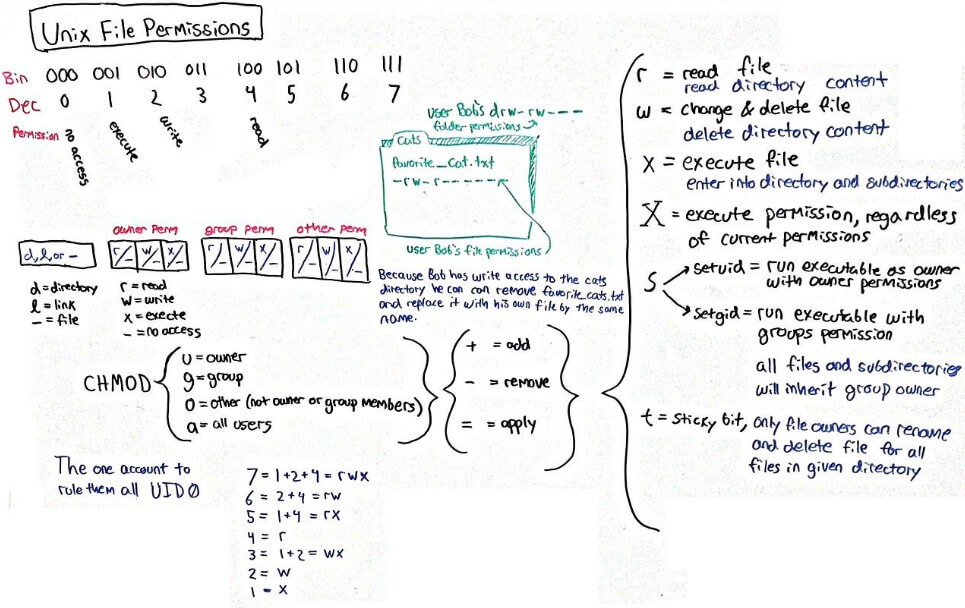 Unix File Permissions
Bin 000 001 010 011 100 101 110 111
Dec 0 1 2 3 4 5 6 7
Permission no access execute write read
user Bob's drw-rw----
folder permissions
cats
favorite_cat.txt
-rw-r-----
user Bob's file permissions
Because Bob has write access to the cats
directory he can can remove favorite_cats.txt
and replace it with his own file by the same
name.
owner perm group perm other perm
d,l,or - r/- w/- x/- r/- w/- x/- r/- w/- x/-
d = directory
l = link
- = file
r = read
w = write
x = execte
- = no access
CHMOD
u = owner
g = group
o = other (not owner or group members)
a = all users
+ = add
- = remove
= = apply
r = read file
read directory content
w = change & delete file
delete directory content
x = execute file
enter into directory and subdirectories
X = execute permission, regardless
of current permissions
s
setuid = run executable as owner
with owner permissions
setgid = run executable with
groups permission
all files and subdirectories
will inherit group owner
t = sticky bit, only file owners can rename
and delete file for all
files in given directory
The one account to
rule them all UID0
7 = 1+2+4 = rwx
6 = 2+4 = rw
5 = 1+4 = rx
4 = r
3 = 1+2 = wx
2 = w
1 = x